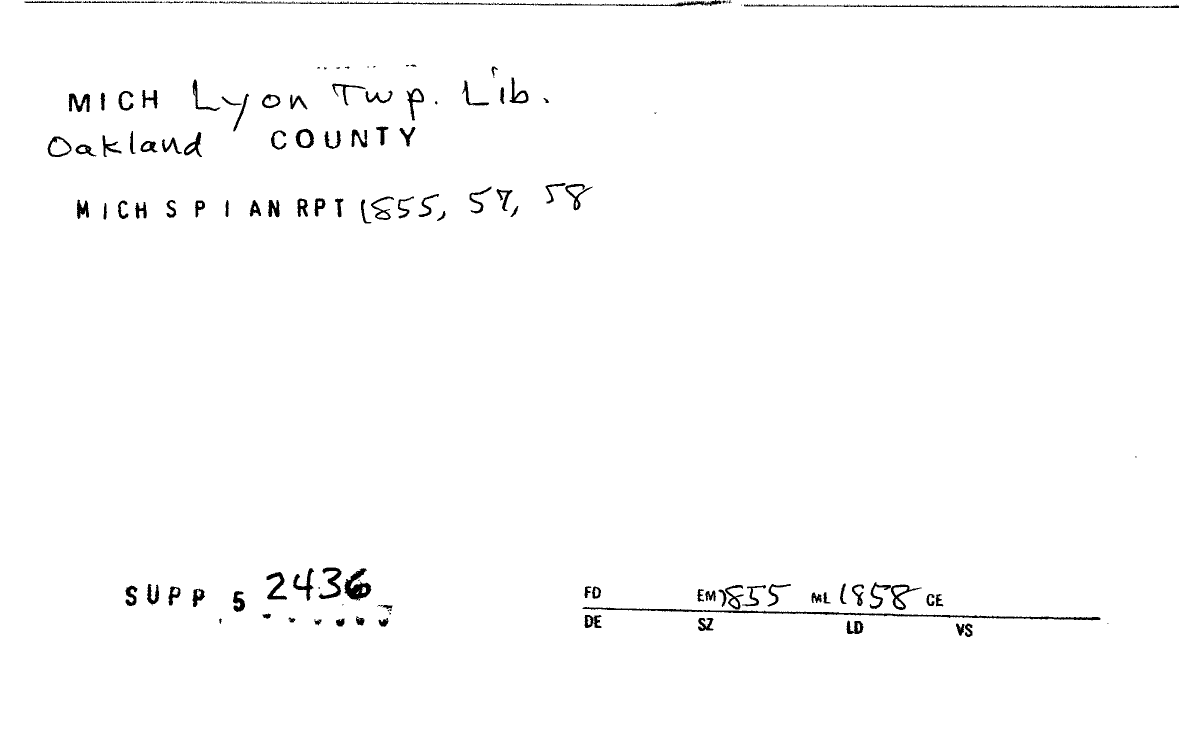 MICH Lyon Twp. Lib.
Oakland COUNTY
MICH S P I AN RPT 1855, 57, 58
SUPP 5 2436
FD EM 1855 ML 1858 CE
DE SZ LD VS